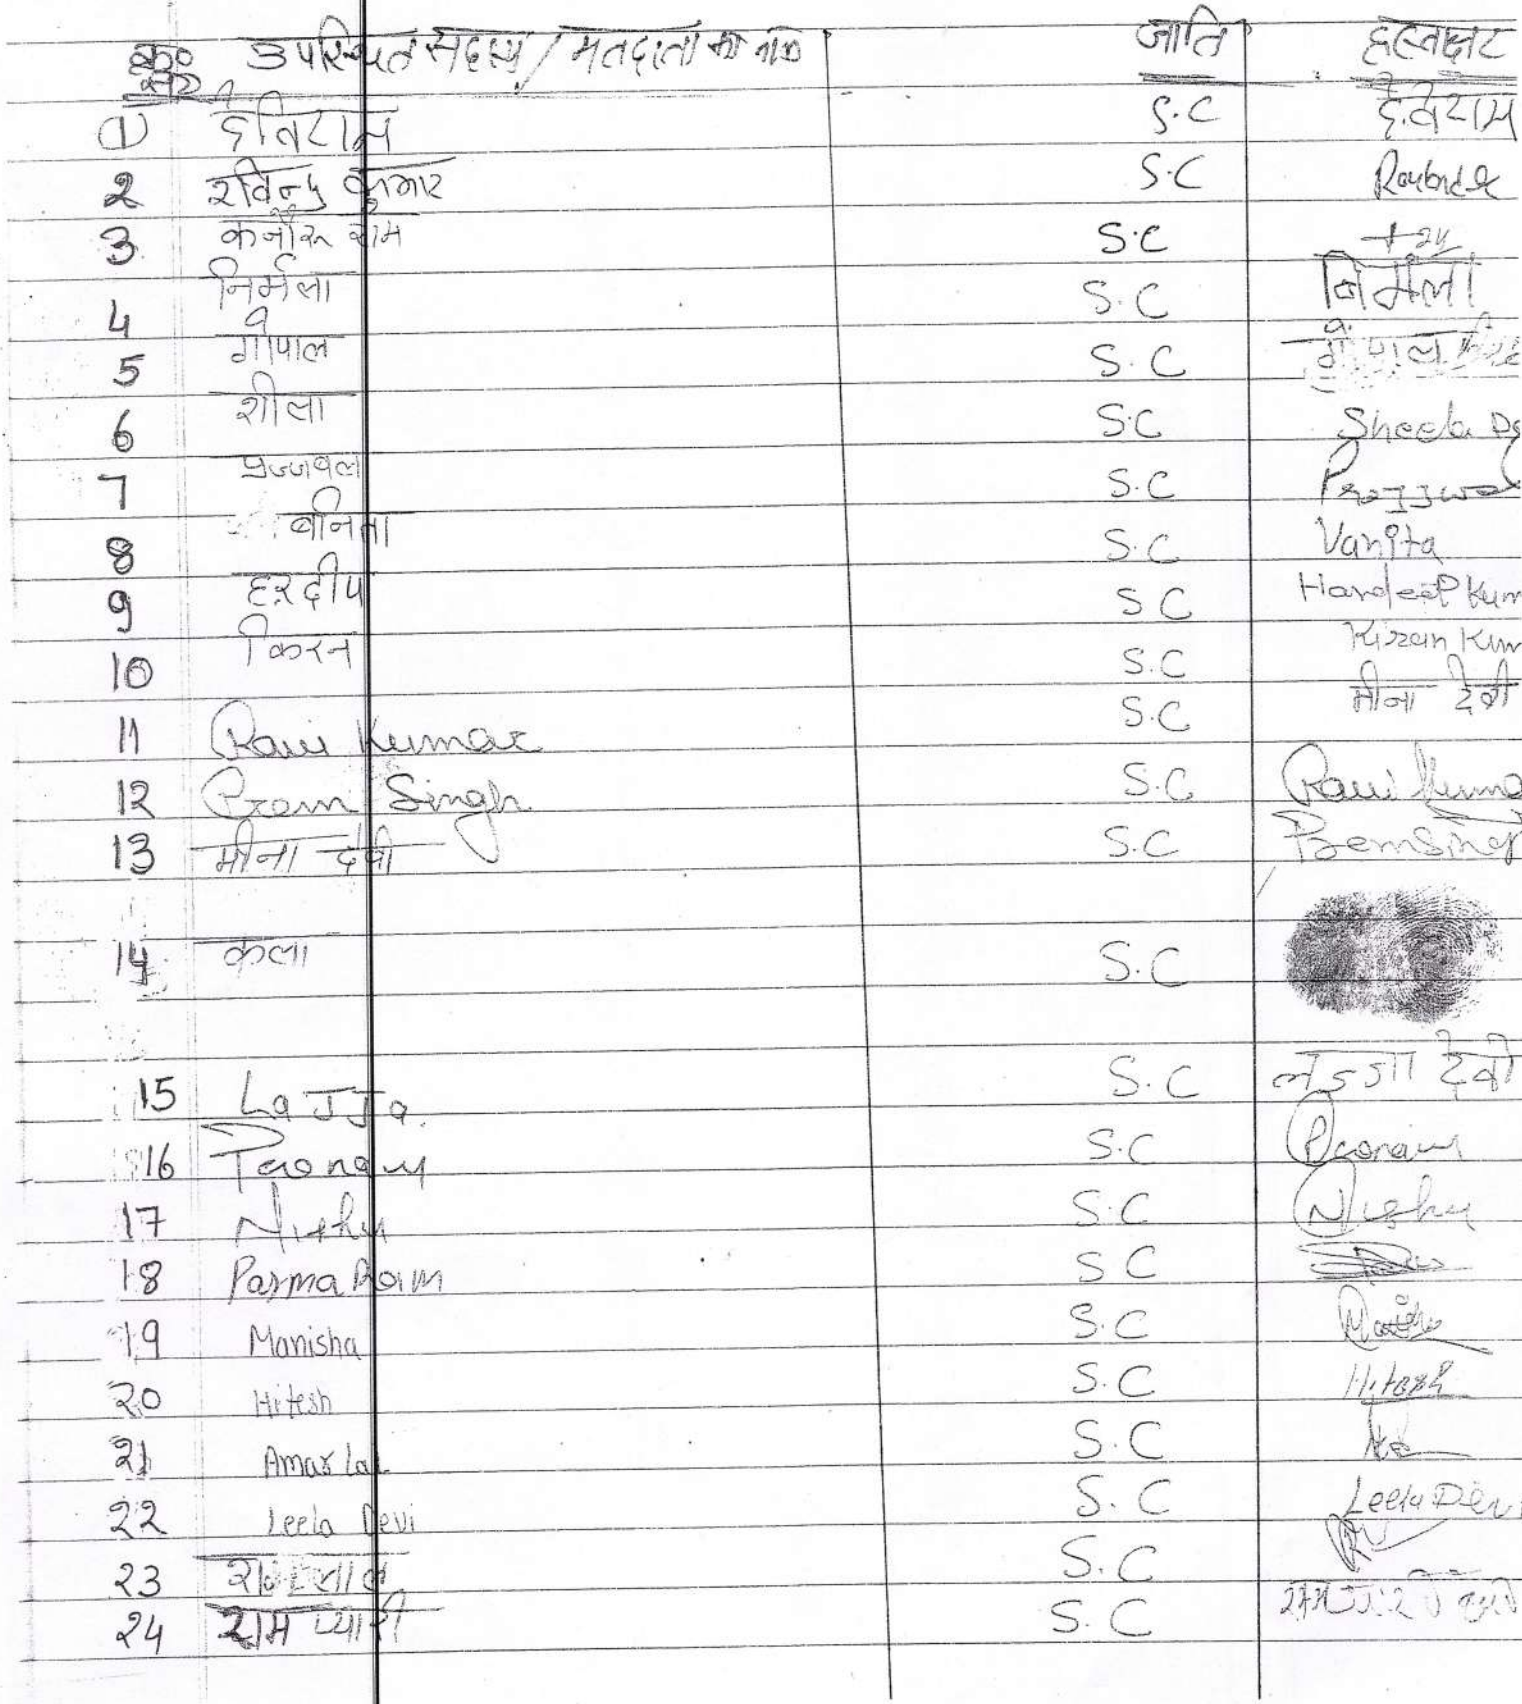 क्र० उपस्थित सदस्य / मतदाता का नाम जाति हस्ताक्षर
सं०
1 S.C
2 रविन्द्र कुमार S.C
3 राम S.C
4 निर्मला S.C निर्मला
5 गोपाल S.C गोपाल
6 शीला S.C Sheela
7 प्रज्जवल S.C Prajjwal
8 बनिता S.C Vanita
9 हरदीप S C Hardeep Kum
10 किरन S.C Kiran Kum
11 Ravi Kumar S.C मीना देवी
12 Prem Singh S.C Ravi Kuma
13 मीना देवी S.C Prem Sing
14 कला S.C
15 LaJJa. S.C लज्जा देवी
16 Poonam S.C Poonam
17 Nishu S.C Nishu
18 Parma Ram S C
19 Manisha S.C
20 Hitesh S.C Hitesh
21 Amar Lal S.C
22 Leela Devi S.C Leela Devi
23 S.C
24 राम प्यारी S.C